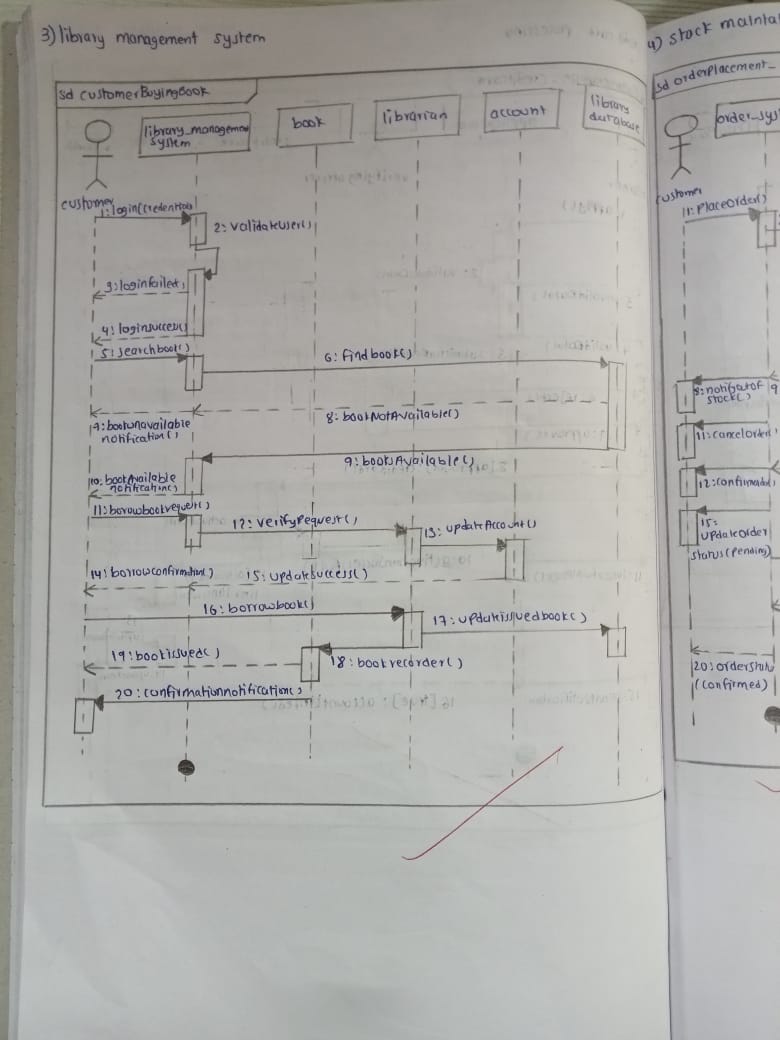 3) library management system
sd customerBuyingBook
library_managemen
system
book
librarian
account
library
database
customer
1: login(credential)
2: validateUser()
3: loginfailed,
4: loginsuccess()
5: searchbook()
6: findbook()
8: bookNotAvailable()
9: bookunavailable
notification()
9: booksAvailable()
10: bookAvailable
notification()
11: borrowbookrequest()
12: verifyRequest()
13: updateAccount()
14: borrowconfirmation()
15: updateSuccess()
16: borrowbook()
17: updateissuedbook()
19: bookissued()
18: bookrecorder()
20: confirmationnotification()
4) stock mainta
sd orderplacement_
order_sys
customer
11: Placeorder()
8: notifyoutof
stock()
9
11: cancelorder(
12: confirmorder(
15:
updateorder
status(pending)
20: orderstatu
(confirmed)